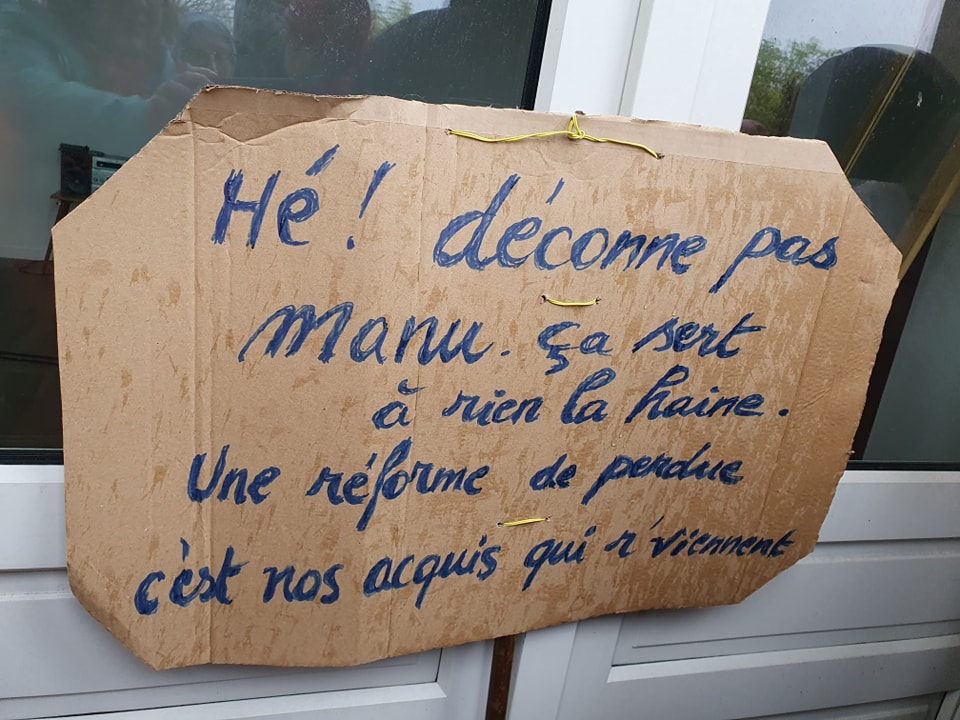 Hé! déconne pas
Manu. ça sert
à rien la haine.
Une réforme de perdue
c'est nos acquis qui r'viennent